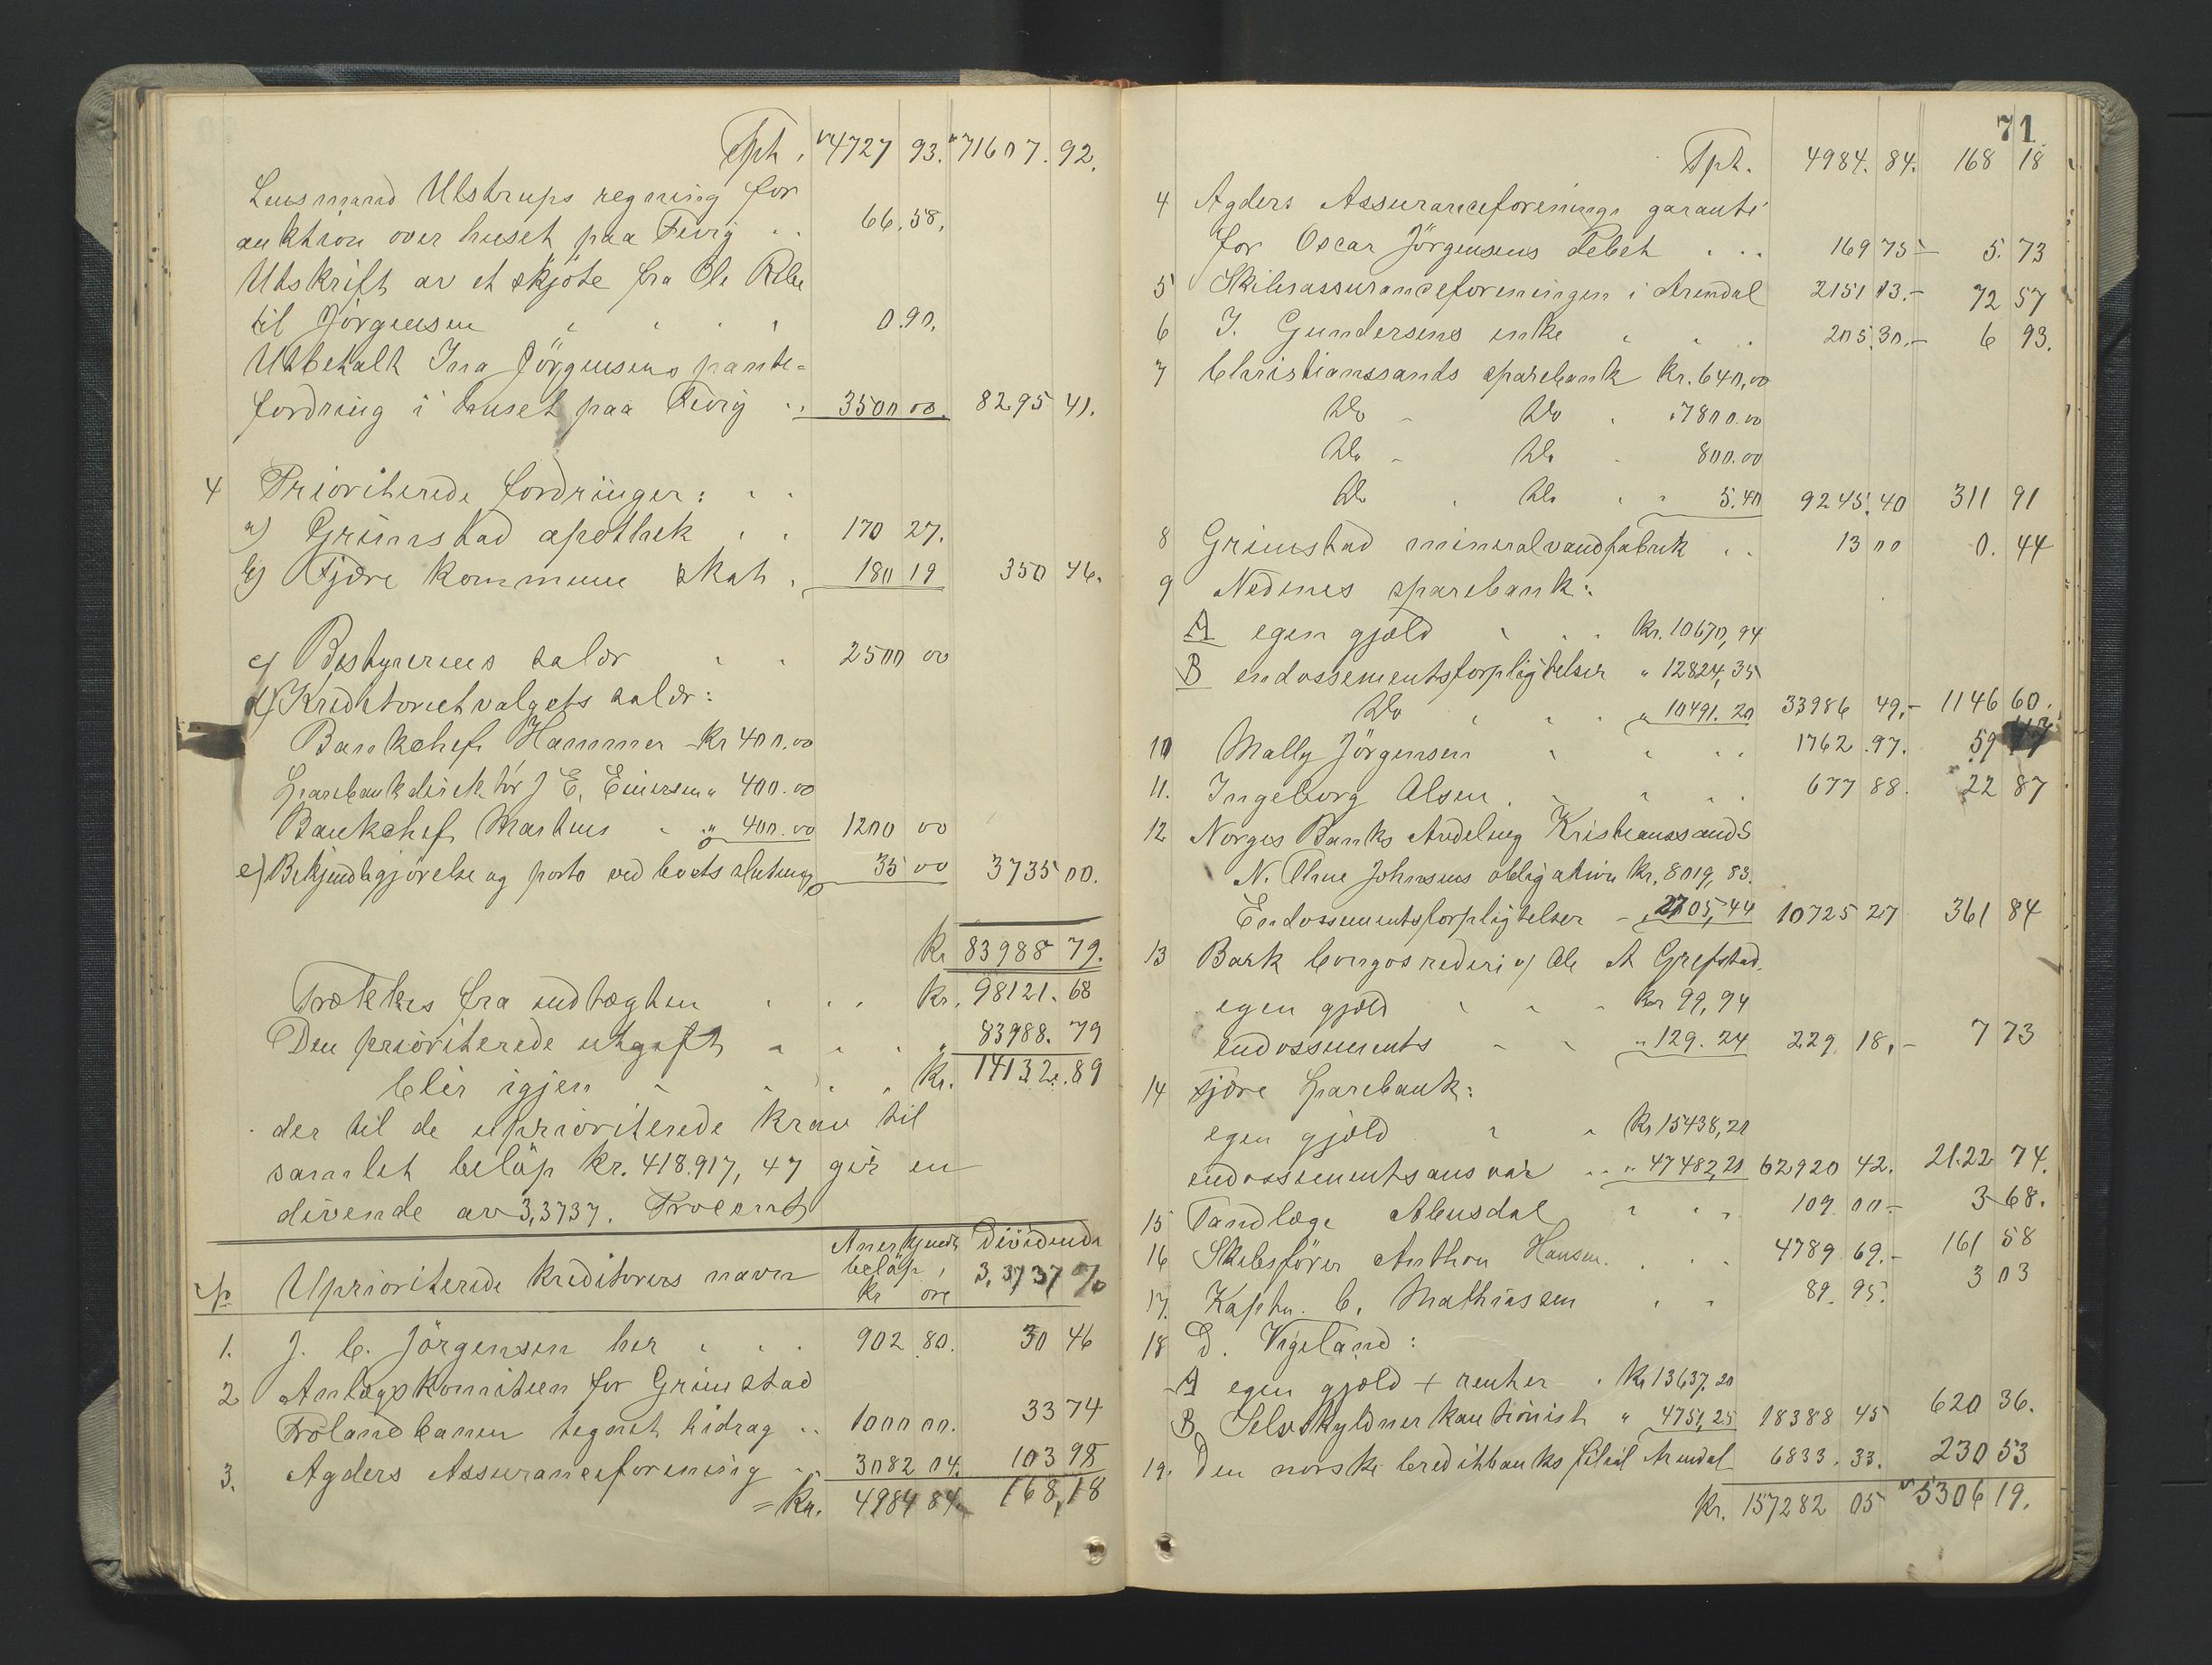 Tpt. 4727 93. 71607. 92.
Lensmand Ulstrups regning for
auktion over huset paa Fevig .. 66.58.
Utskrift av et skjöte fra Ole Ribe
til Jörgensen 0.90.
Utbetalt Ina Jörgensens pante=
fordring i huset paa Fevig .. 3500 00. 8295 41.
4 Prioriterede fordringer:
a) Grimstad apothek 170 27.
b) Fjære kommune skat. 180 19 350 46.
c) Bestyrerens salær 2500 00
d) Kreditorutvalgets salær:
Bankchef Hammer Kr 400.00
Sparebankdirektör J E. Einersen " 400.00
Bankchef Martens " 400.00 1200 00
e) Bekjendtgjörelse og porto ved boets slutning 35 00 3735 00.
Kr 83988 79.
Trækkes fra indtægten Kr. 98121. 68
Den prioriterede utgift " 83988. 79
blir igjen Kr. 14132.89
der til de uprioriterede krav til
samlet belöp kr. 418.917, 47 gir en
divende av 3,3737. Procent
Anerkjendt Dividende
No Uprioriterede kreditorers navn belöp, 3,3737 %
kr öre
1. J. C. Jörgensen her 902 80. 30 46
2 Anlægskomiteen for Grimstad
Frolandbanen tegnet bidrag .. 1000 00. 33 74
3. Agders Assuranceforening 3082 04. 103 98
= Kr. 4984 84. 168,18
71
Tpt. 4984. 84. 168 18
4 Agders Assuranceforenings garanti
for Oscar Jörgensens Debet ... 169 75 – 5. 73
5 Skibsassuranceforeningen i Arendal 2151 13.– 72 57
6 J. Gundersens enke 205.30.– 6 93.
7 Christianssands sparebank kr. 640,00
Do – Do 7800.00
Do – Do 800.00
Do Do 5.40 9245.40 311 91
8 Grimstad mineralvandfabrik .. 13 00 0. 44
9 Nedenes sparebank:
A egen gjæld Kr. 10670,94
B endossementsforpligtelser " 12824,35
Do " 10491. 20 33986 49.– 1146 60.
10 Mally Jörgensen 1762.97. 59
11. Ingeborg Olsen 677 88. 22 87
12 Norges Banks Avdeling Kristianssand S
N. Thue Johnsens obligation Kr. 8019, 83.
Endossementsforpligtelser – 2705,44 10725 27 361 84
13 Bark Congos rederi v/ Ole A Grefstad.
egen gjæld Kr 99,94
endossements " 129. 24 229 18.– 7 73
14 Fjære Sparebank:
egen gjæld Kr 15438,21
endossementsansvar .. " 47482,21 62920 42. 2122 74.
15 Tandlæge Abusdal 109 00 – 3 68.
16 Skibsförer Anthon Hansen. 4789 69.– 161 58
17. Kaptn. C. Mathiassen 89. 95. 3 03
18 D. Vigeland:
A egen gjæld + renter . Kr 13637.20
B Selvskyldnerkautionist " 4751,25 18388 45 620 36.
19. Den norske Creditbanks filial Arendal 6833. 33. 230 53
Kr. 157282 05 5306 19.